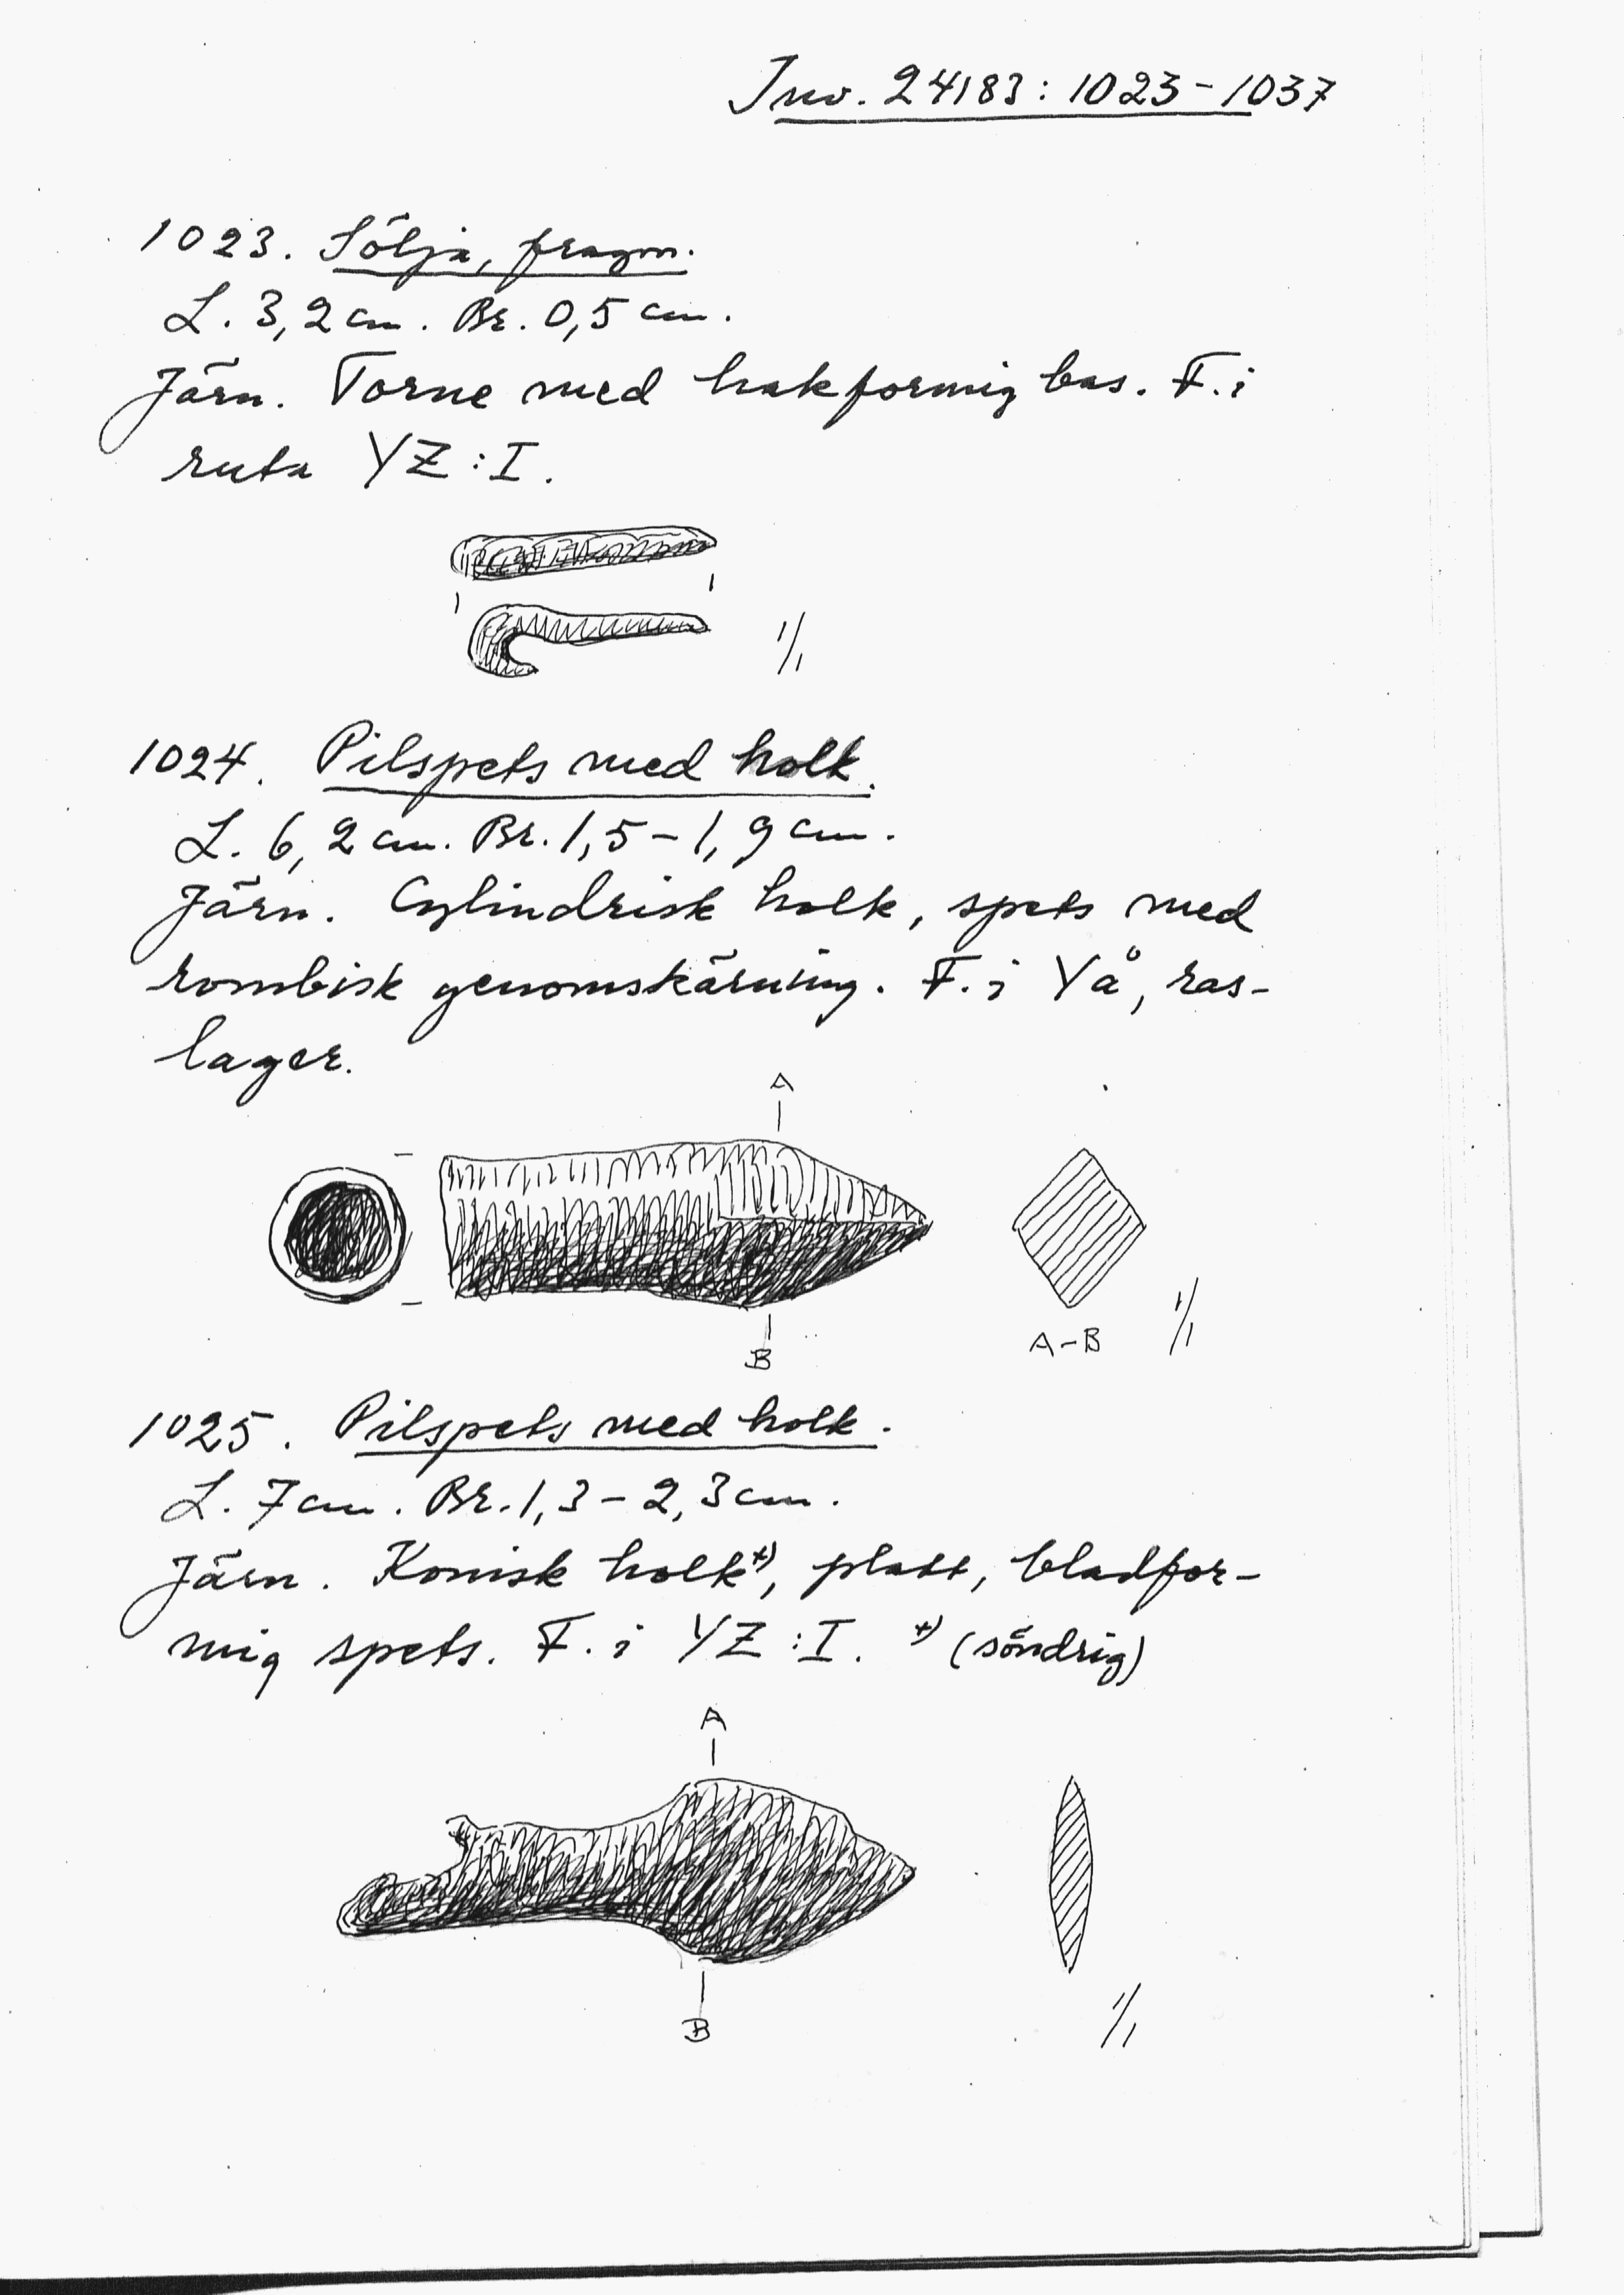 Inv. 24183: 1023-1037
1023. Sölja, fragm.
L. 3,2 cm. Br. 0,5 cm.
Järn. Torne med hakformig bas. F. i
ruta YZ:I.
1/1
1024. Pilspets med holk.
L. 6,2 cm. Br. 1,5-1,9 cm.
Järn. Cylindrisk holk, spets med
rombisk genomskärning. F. i Yå, ras-
lager.
A
B
A-B
1/1
1025. Pilspets med holk.
L. 7 cm. Br. 1,3-2,3 cm.
Järn. Konisk holk+), platt, bladfor-
mig spets. F. i YZ:I. +) (söndrig)
A
B
1/1